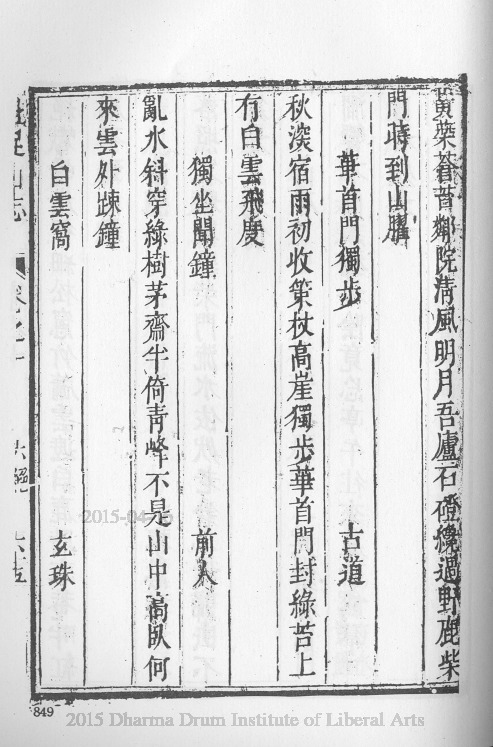 黃蘗薝蔔鄰院清風明月吾廬石磴讒過野鹿柴
門時到山臞
華首門獨步　古道
秋深宿雨初收策杖高崖獨步華首門封綠苔上
有白雲飛度
獨坐聞鐘　前人
亂水斜穿綠樹茅齋半倚青峰不是山中高臥何
來雲外踈鐘
白雲窩　玄珠
足山志
六絕
六五
849
2015-04
2015 Dharma Drum Institute of Liberal Arts